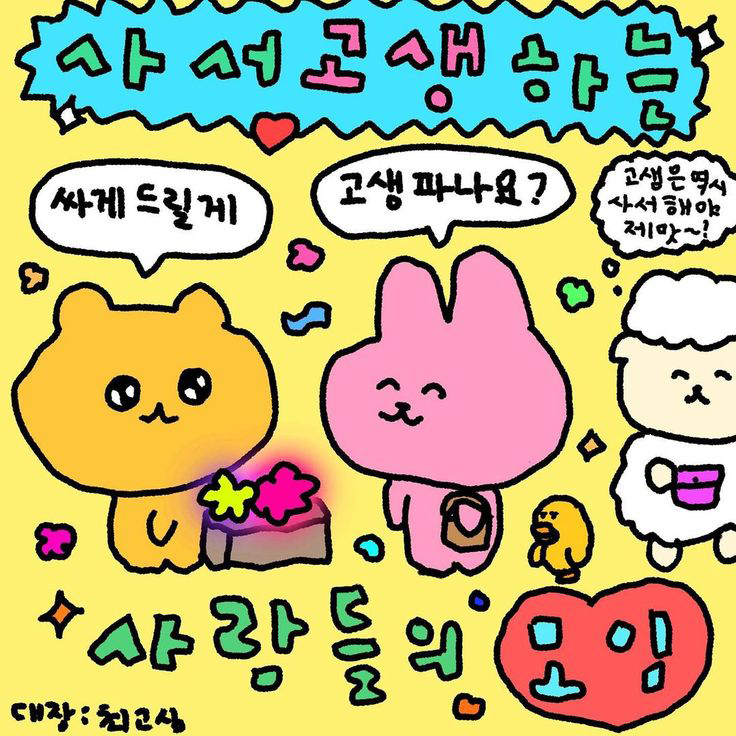 사서고생하는
싸게 드릴게
고생 파나요?
고생은 역시
사서 해야
제맛~!
사람들의 모임
대장 : 최고심